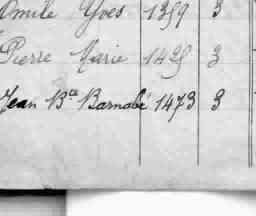 Omile Yves 1359 3
Pierre Marie 1425 3
Jean Bte Barnabé 1473 3